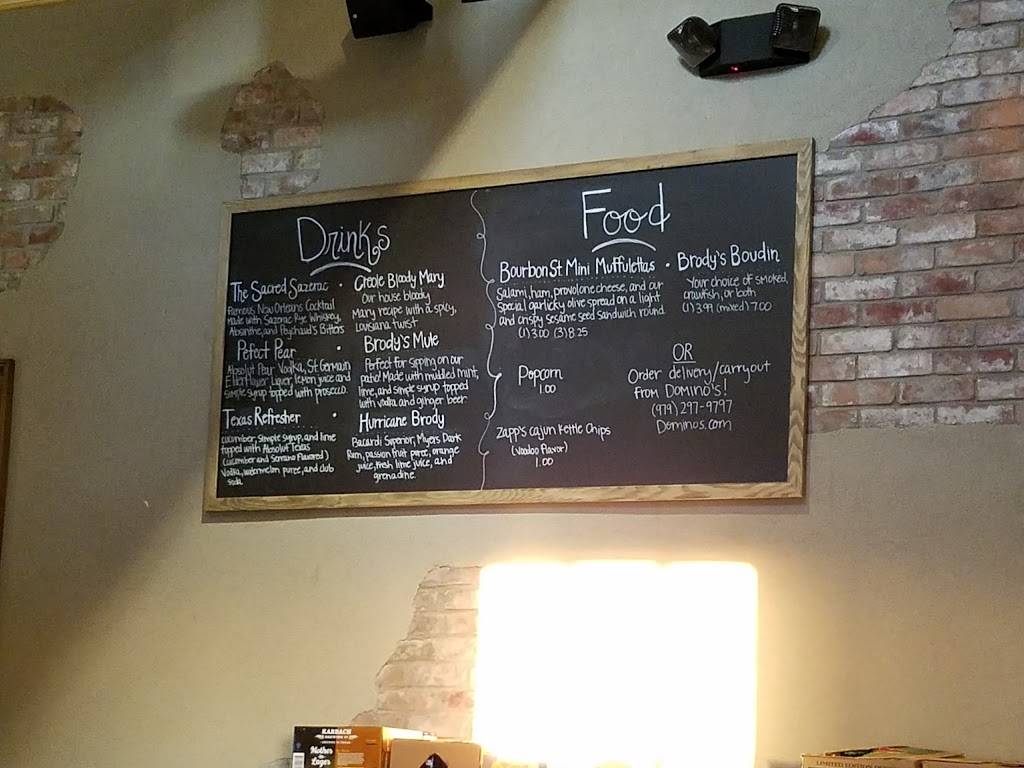 Drinks
The Sacred Sazerac
Famous New Orleans Cocktail
Made with Sazerac Rye Whiskey,
Absinthe, and Peychaud's Bitters
Pefect Pear
Absolut Pear Vodka, St. Germain
Elderflower Liquer, lemon juice and
simple syrup topped with prosecco.
Texas Refresher
cucumber, simple syrup, and lime
topped with Absolut Texas
(cucumber and Serrano Flavored)
Vodka, watermelon puree, and club
soda
Creole Bloody Mary
Our house bloody
Mary recipe with a spicy,
Louisiana twist
Brody's Mule
Perfect for sipping on our
patio! Made with muddled mint,
lime, and simple syrup topped
with vodka and ginger beer
Hurricane Brody
Bacardi Superior, Myers Dark
Rum, passion fruit puree, orange
juice, fresh lime juice, and
grenadine.
Food
Bourbon St Mini Muffulettas
Salami, ham, provolone cheese, and our
special garlicky olive spread on a light
and crispy sesame seed sandwich round
(1) 3.00 (3) 8.25
Popcorn
1.00
Zapp's Cajun Kettle Chips
(Voodoo Flavor)
1.00
Brody's Boudin
Your choice of smoked,
crawfish, or both
(1) 3.99 (mixed) 7.00
OR
Order delivery/carryout
from Domino's!
(979) 297-9797
Dominos.com
KARBACH
BREWING CO
Mother
in
Lager
LIMITED EDITION